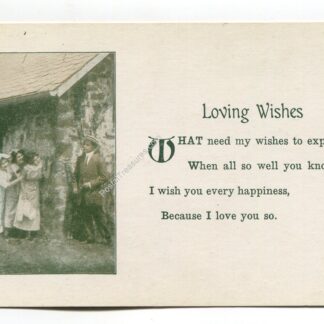 Loving Wishes
WHAT need my wishes to exp
When all so well you kno
I wish you every happiness,
Because I love you so.